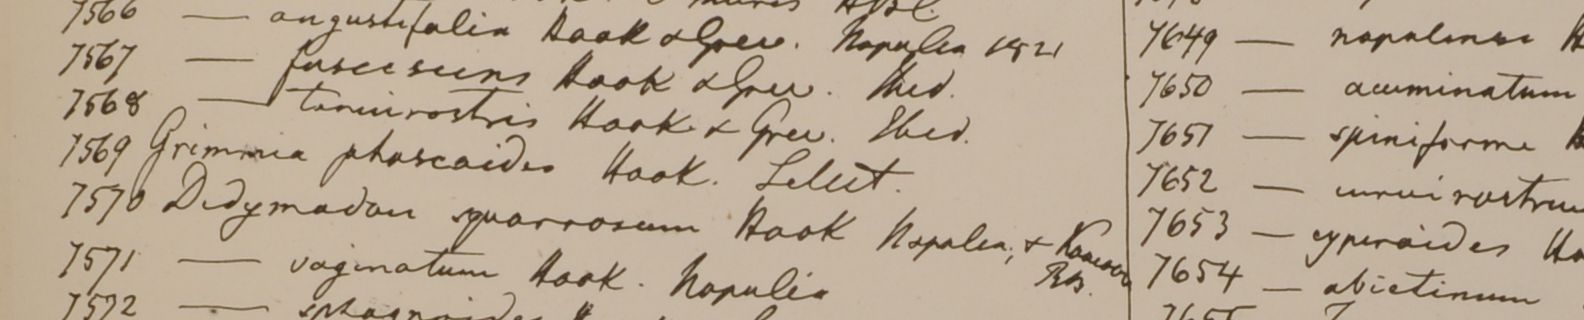 7566 — angustifolia Hook & Grev. Napalia 1821
7567 — fuscescens Hook & Grev. Ibid.
7568 — tenuirostris Hook & Grev. Ibid.
7569 Grimmia phascoides Hook. Select.
7570 Didymodon squarrosum Hook Napalia, & Kamoon
RB.
7571 — vaginatum Hook. Napalia
7572 — sphagnoides
7649 — napalense
7650 — acuminatum
7651 — spiniforme
7652 — curvirostrum
7653 — cyperoides Ho
7654 — abietinum
7655